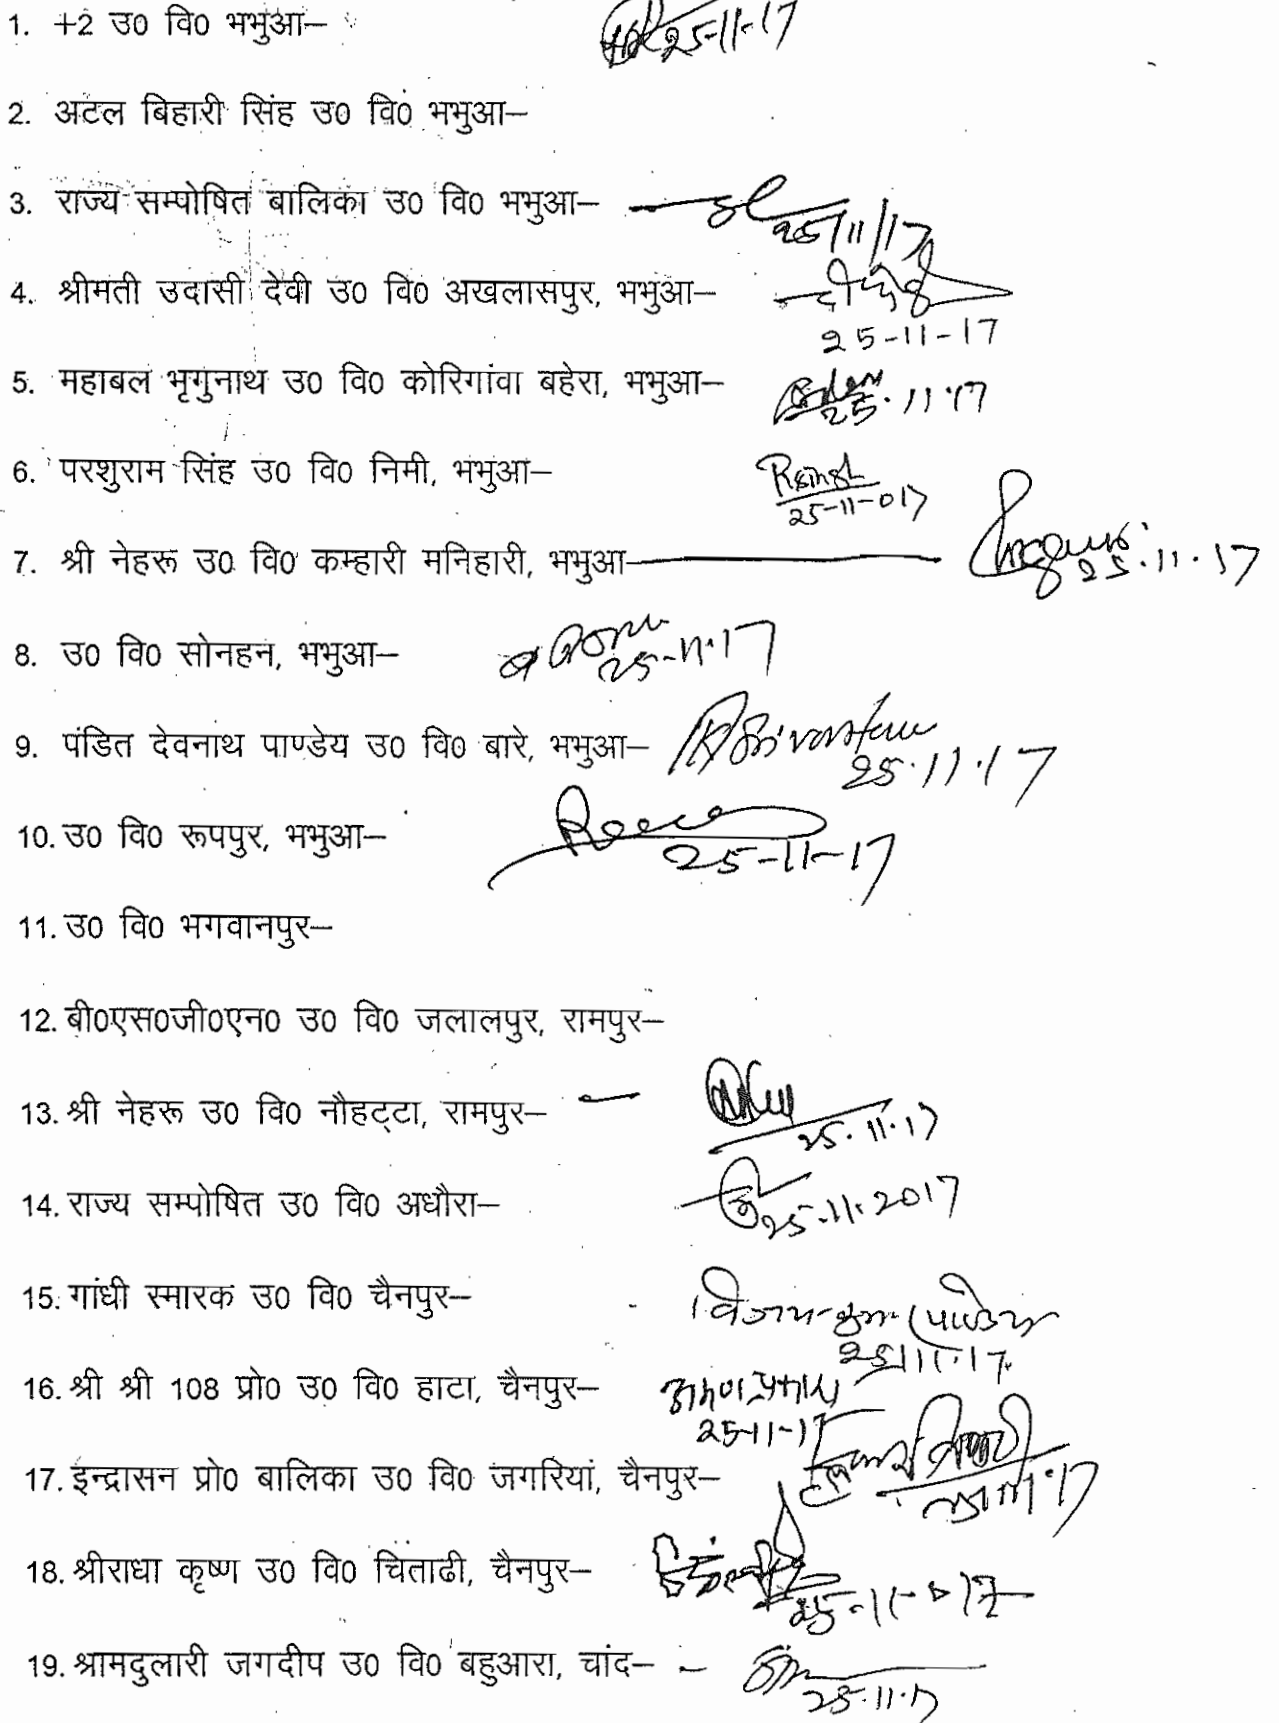 1. +2 उ0 वि0 भभुआ– 25-11-17
2. अटल बिहारी सिंह उ0 वि0 भभुआ–
3. राज्य सम्पोषित बालिका उ0 वि0 भभुआ– 25/11/17
4. श्रीमती उदासी देवी उ0 वि0 अखलासपुर, भभुआ–
25-11-17
5. महाबल भृगुनाथ उ0 वि0 कोरिगांवा बहेरा, भभुआ– 25.11.17
6. परशुराम सिंह उ0 वि0 निमी, भभुआ– RSingh
25-11-017
7. श्री नेहरू उ0 वि0 कम्हारी मनिहारी, भभुआ– 25.11.17
8. उ0 वि0 सोनहन, भभुआ– 25-11.17
9. पंडित देवनाथ पाण्डेय उ0 वि0 बारे, भभुआ– 25.11.17
10. उ0 वि0 रूपपुर, भभुआ– 25-11-17
11. उ0 वि0 भगवानपुर–
12. बी0एस0जी0एन0 उ0 वि0 जलालपुर, रामपुर–
13. श्री नेहरू उ0 वि0 नौहट्टा, रामपुर– 25.11.17
14. राज्य सम्पोषित उ0 वि0 अधौरा– 25.11.2017
15. गांधी स्मारक उ0 वि0 चैनपुर– विजय कुमार पाण्डेय
25/11.17
16. श्री श्री 108 प्रो0 उ0 वि0 हाटा, चैनपुर–
25-11-17
17. इन्द्रासन प्रो0 बालिका उ0 वि0 जगरियां, चैनपुर–
18. श्रीराधा कृष्ण उ0 वि0 चिताढी, चैनपुर– 25-11-017
19. श्रामदुलारी जगदीप उ0 वि0 बहुआरा, चांद–
25.11.17